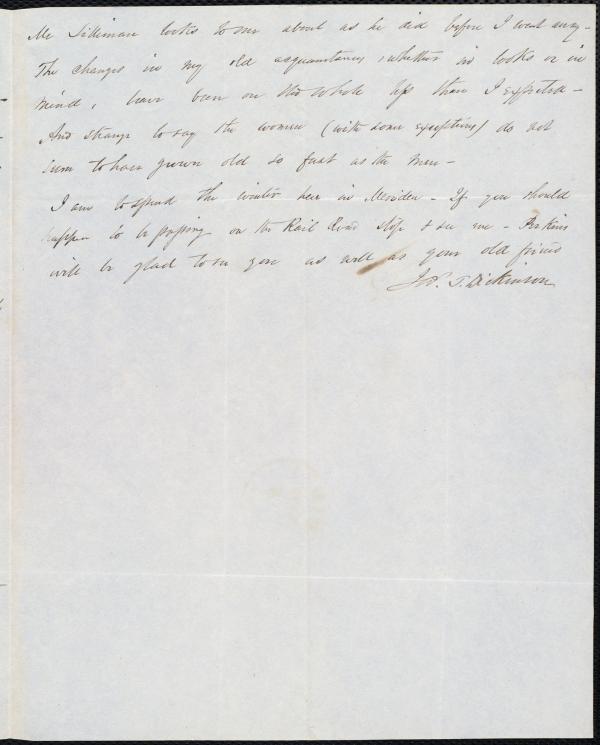 Mr Silliman looks to me about as he did before I went away -
The changes in my old acquaintances, whether in looks or in
mind, have been on the whole less than I expected -
And strange to say the women (with some exceptions) do not
seem to have grown old so fast as the men -
I am to spend the winter here in Meriden - If you should
happen to be passing on the Rail Road stop & see me - Perkins
will be glad to see you as well as your old friend
Jas. T. Dickinson